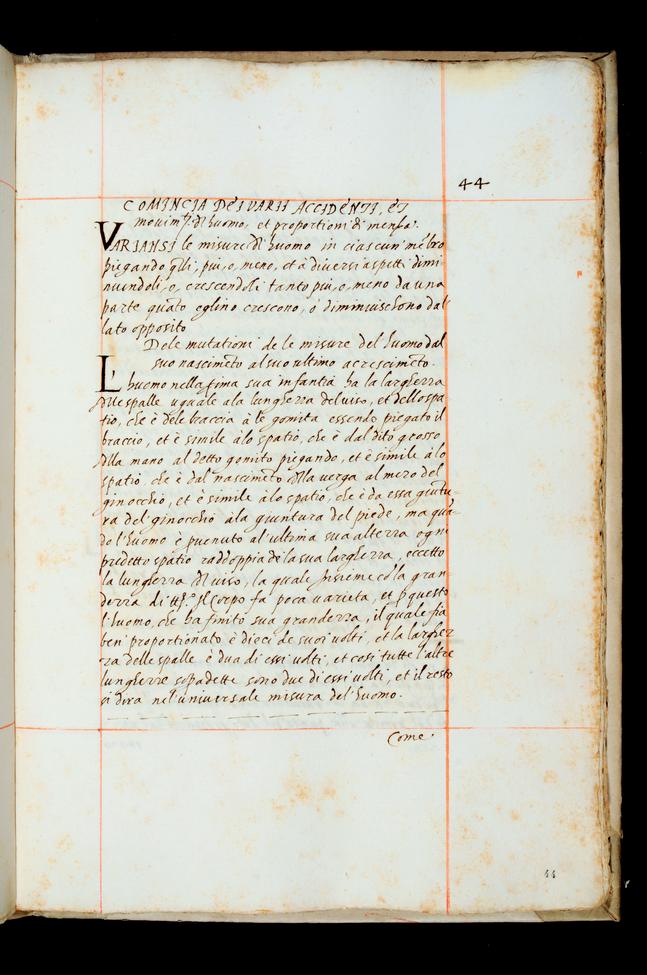 44
COMINCIA DEI VARII ACCIDENTI, ET
movim.ti d'huomo, et proportioni di
VARIANSI le misure d'huomo in ciascun mẽbro
piegando q̃lli, più, o, meno, et à diversi aspetti dimi
nuendoli, o, crescendoli tanto più, o, meno da una
parte quãto eglino crescono, o' diminuischono dal
lato opposito
Dele mutationi de le misure del huomo dal
suo nascimẽto al suo ultimo acrescimẽto.
L' huomo nella p̃ima sua infantia ha la largheza
d̃lle spalle uguale ala lungheza del uiso, et dello spa
tio, che è dele braccia à le gomita essendo piegato il
braccio, et è simile àlo spatio, che è dal dito grosso
d̃lla mano al detto gomito piegando, et è simile àlo
spatio, che è dal nascimẽto d̃lla verga al mezo del
ginocchio, et è simile àlo spatio, che è da essa giũtu-
ra del ginocchio àla giuntura del piede, ma quã-
do l'huomo è puenuto al'ultima sua alteza ogni
predetto spatio raddoppia de la sua largheza, eccetto
la lungheza d'l uiso, la quale insieme cõ la gran
deza di tt.o il Corpo fa poca varietà, et p questo
l'huomo, che ha finito sua grandeza, il quale sia
ben proportionato è dieci de suoi volti, et la larghez
za delle spalle è dua di essi volti, et cosi tutte l'altre
lungheze sopadette sono due di essi volti, et il resto
si dira nel universale misura del huomo.
Come
44